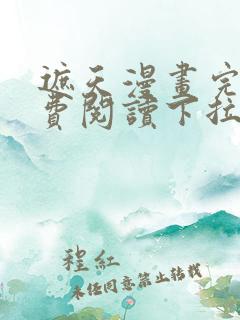 遮天漫畫完
費閱讀下拉
程紅
未经同意禁止转载